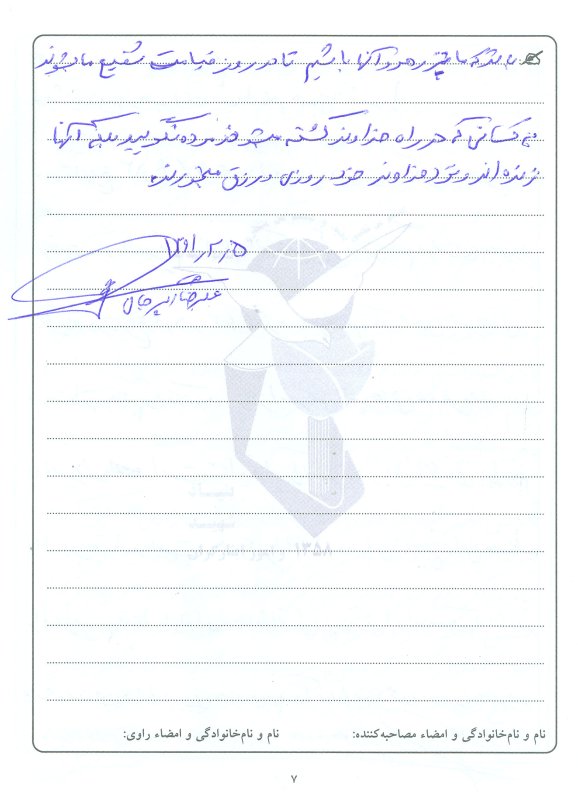 باشد که ما نیز رهرو آنها باشیم تا در روز قیامت شفیع ما شوند
به کسانی که در راه خداوند کشته میشوند مرده نگویید بلکه آنها
زنده اند و نزد خداوند خود روزی و رزق میخورند
۱۳۹۱/۲/۵
علیرضا
۱۳۵۸
نام و نام‌خانوادگی و امضاء مصاحبه‌کننده:
نام و نام‌خانوادگی و امضاء راوی:
۷